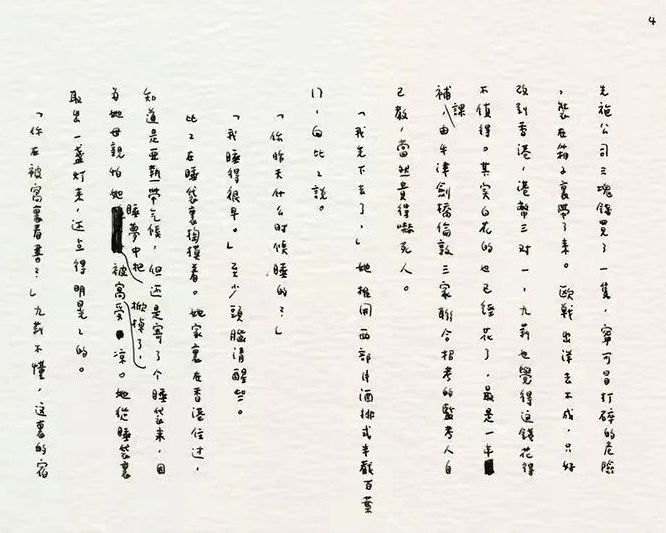 4
先施公司三塊錢買了一隻，寧可冒打碎的危險
，裝在箱子裏帶了来。歐戰出洋去不成，只好
改到香港，港幣三对一，九莉也覺得这錢花得
不值得。其实白花的也已經花了，最是一年
補課，由牛津劍橋倫敦三家聯合招考的監考人自
己教，當然貴得嚇死人。
「我先下去了，」她推開西部片酒排式半截百葉
门，向比々說。
「你昨天什么时候睡的？」
「我睡得很早。」至少頭腦清醒些。
比々在睡袋裏掏摸着。她家裏在香港住过，
知道是亞熱帶气候，但还是寄了个睡袋来，因
为她母親怕她睡夢中把被窩掀掉了，受凉。她從睡袋裏
取出一盞灯来，还点得明晃々的。
「你在被窩裏看書？」九莉不懂，这裏的宿